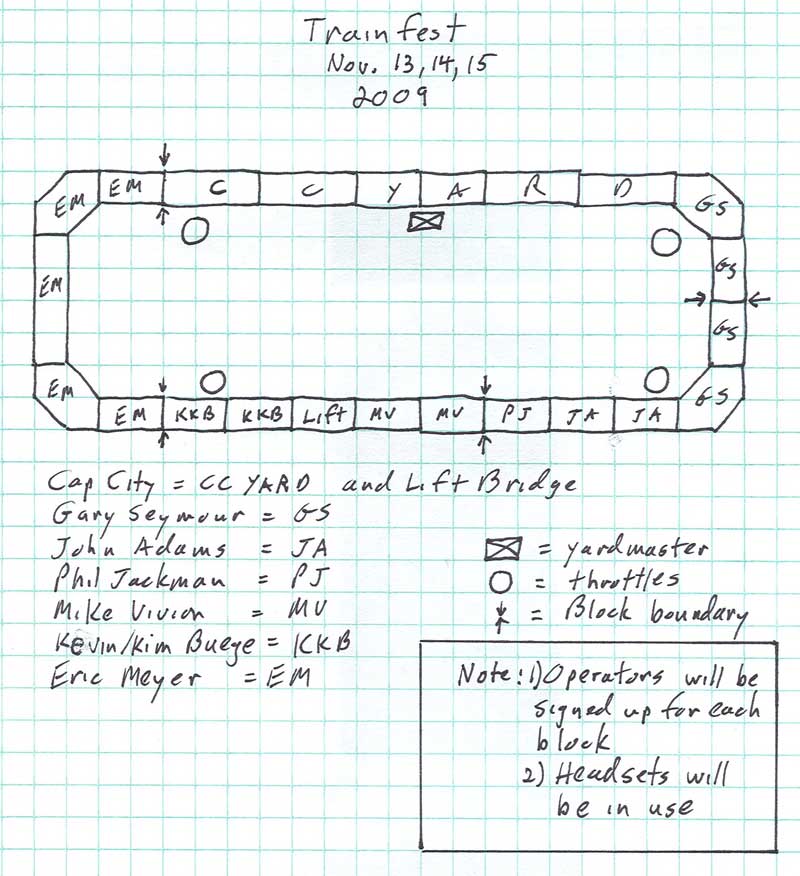 Trainfest
Nov. 13, 14, 15
2009
EM EM C C Y A R D GS
EM GS
GS
EM EM KKB KKB Lift MV MV PJ JA JA GS
Cap City = CC YARD and Lift Bridge
Gary Seymour = GS
John Adams = JA
Phil Jackman = PJ
Mike Vivion = MV
Kevin/Kim Buege = KKB
Eric Meyer = EM
= yardmaster
= throttles
= Block boundary
Note: 1) Operators will be
signed up for each
block
2) Headsets will
be in use